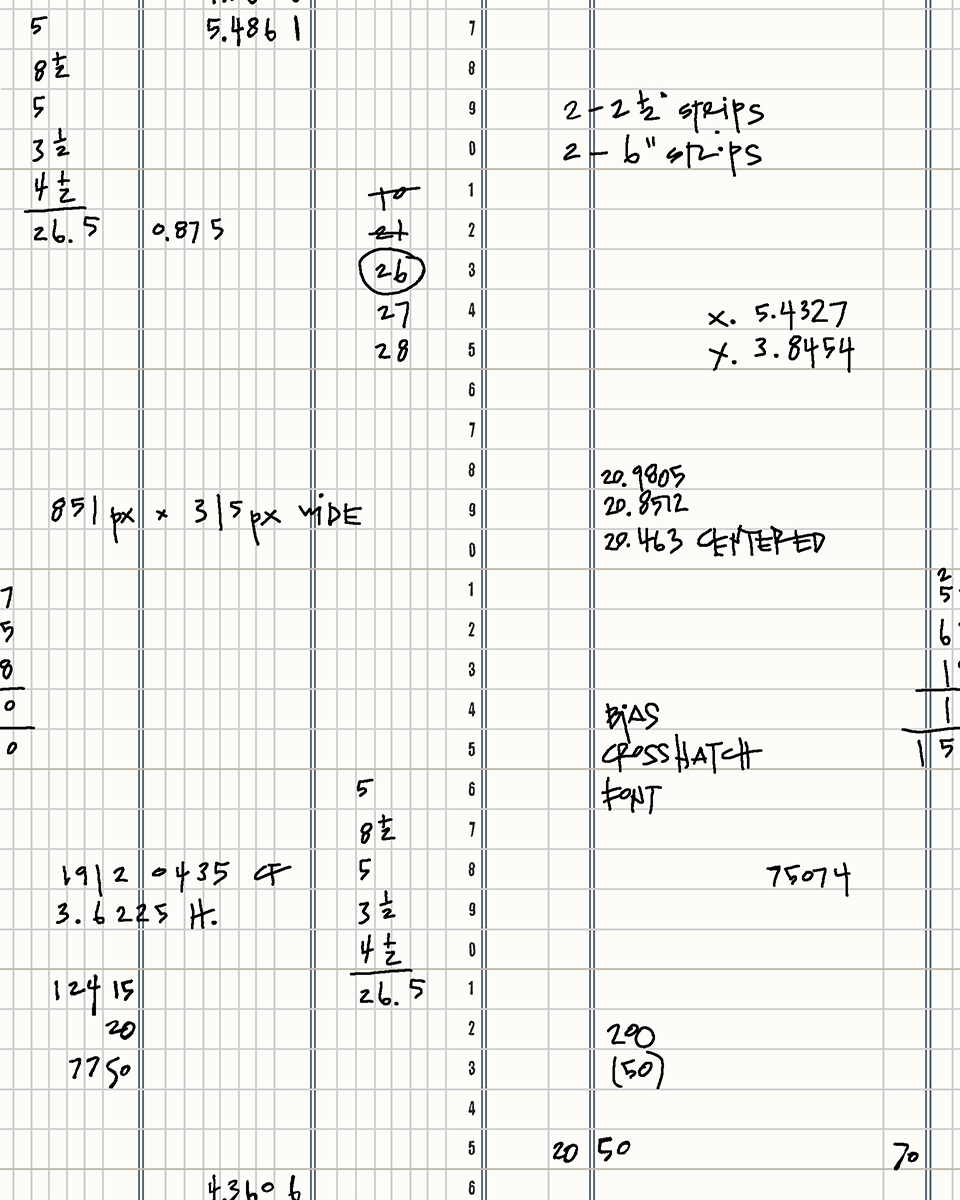 5
5.4861
7
8 1/2
8
5
9
2 - 2 1/2" strips
3 1/2
0
2 - 6" strips
4 1/2
10
1
26.5
0.875
21
2
26
3
27
4
x. 5.4327
28
5
y. 3.8454
6
7
8
20.9805
851 px x 315 px WIDE
9
20.8512
0
20.463 CENTERED
7
1
2
5
5
2
6
8
3
1
0
4
BIAS
1
0
5
CROSSHATCH
15
5
6
FONT
8 1/2
7
19120435 CF
5
8
75074
3.6225 H.
3 1/2
9
4 1/2
0
12415
26.5
1
20
2
200
7750
3
(50)
4
5
20 50
70
4.3606
6